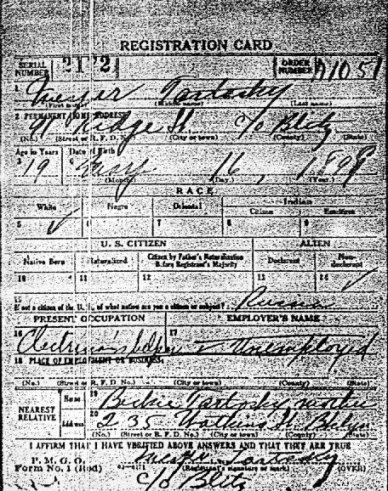 REGISTRATION CARD
SERIAL NUMBER 2172 ORDER NUMBER
1
(First name) (Middle name) (Last name)
2 PERMANENT HOME ADDRESS
Ridge St c/o Blitz
(No.) (Street or R. F. D. No.) (City or town) (County) (State)
Age in Years Date of Birth
19 May 16, 1899
(Month) (Day) (Year)
RACE
White Negro Oriental Indian
Citizen Noncitizen
5 ✓ 6 7 8 9
U. S. CITIZEN ALIEN
Native Born Naturalized Citizen by Father's Naturalization Before Registrant's Majority Declarant Non-declarant
10 11 12 13 14 ✓
15 If not a citizen of the U. S., of what nation are you a citizen or subject? Russia
PRESENT OCCUPATION EMPLOYER'S NAME
16 17
Electrician's helper Unemployed
18 PLACE OF EMPLOYMENT OR BUSINESS
(No.) (Street or R. F. D. No.) (City or town) (County) (State)
NEAREST RELATIVE
Name 19 mother
Address 20 235 Watkins St Bklyn
(No.) (Street or R. F. D. No.) (City or town) (County) (State)
I AFFIRM THAT I HAVE VERIFIED ABOVE ANSWERS AND THAT THEY ARE TRUE
P. M. G. O.
Form No. 1 (Red) (Registrant's signature or mark) (OVER)
c/o Blitz